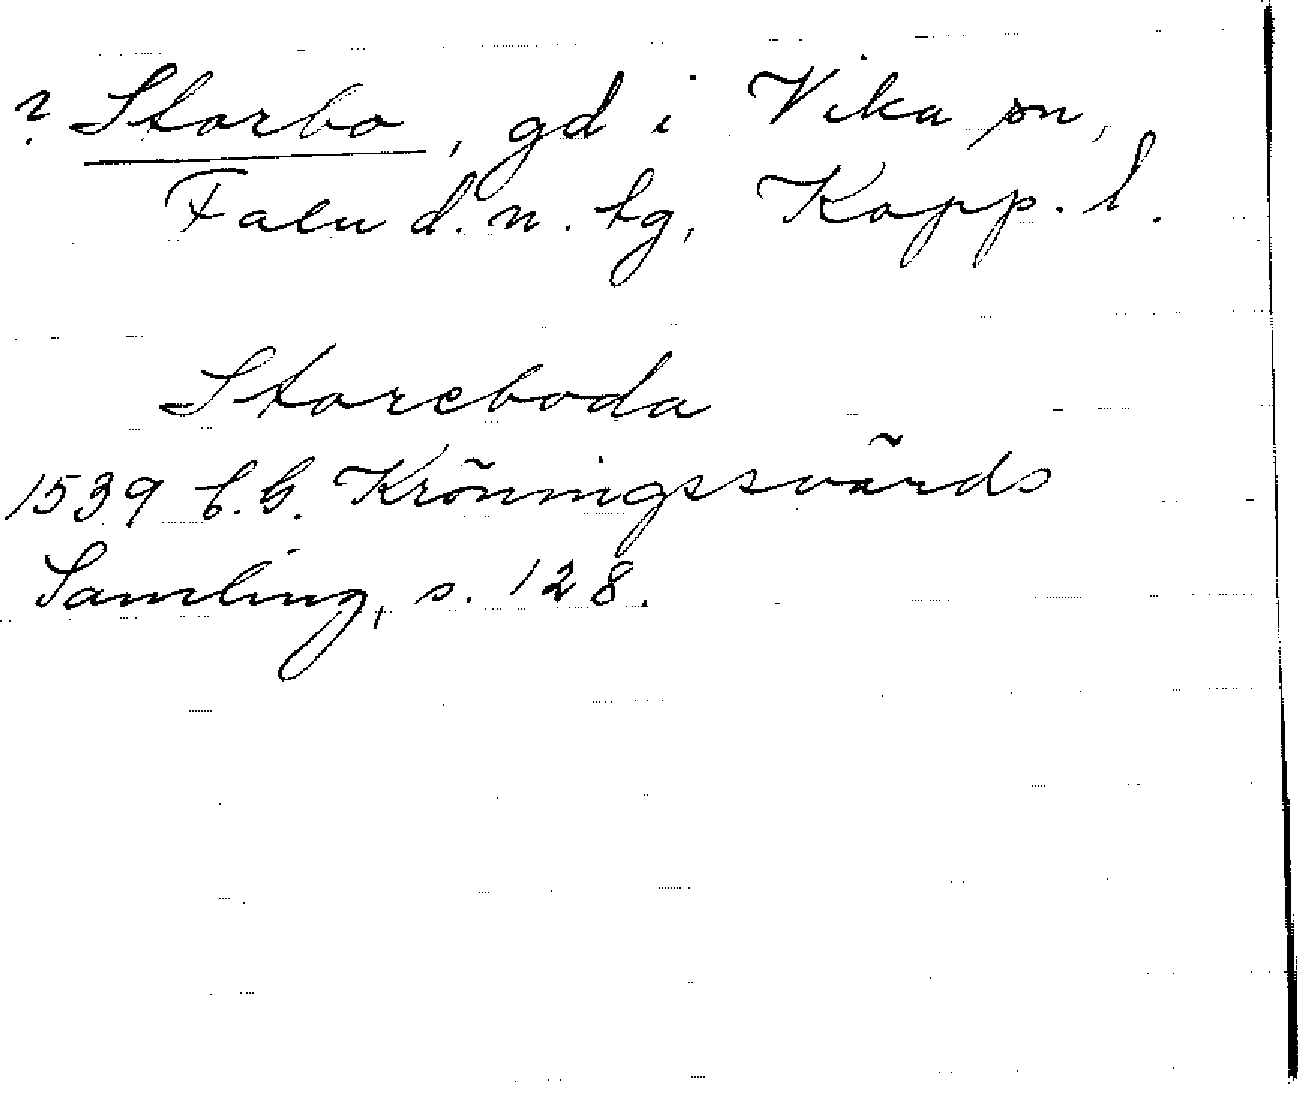 ? Storbo, gd i Vika sn,
Falu d. n. tg, Kopp. l.
Storeboda
1539 C. G. Kröningssvärds
Samling, s. 128.